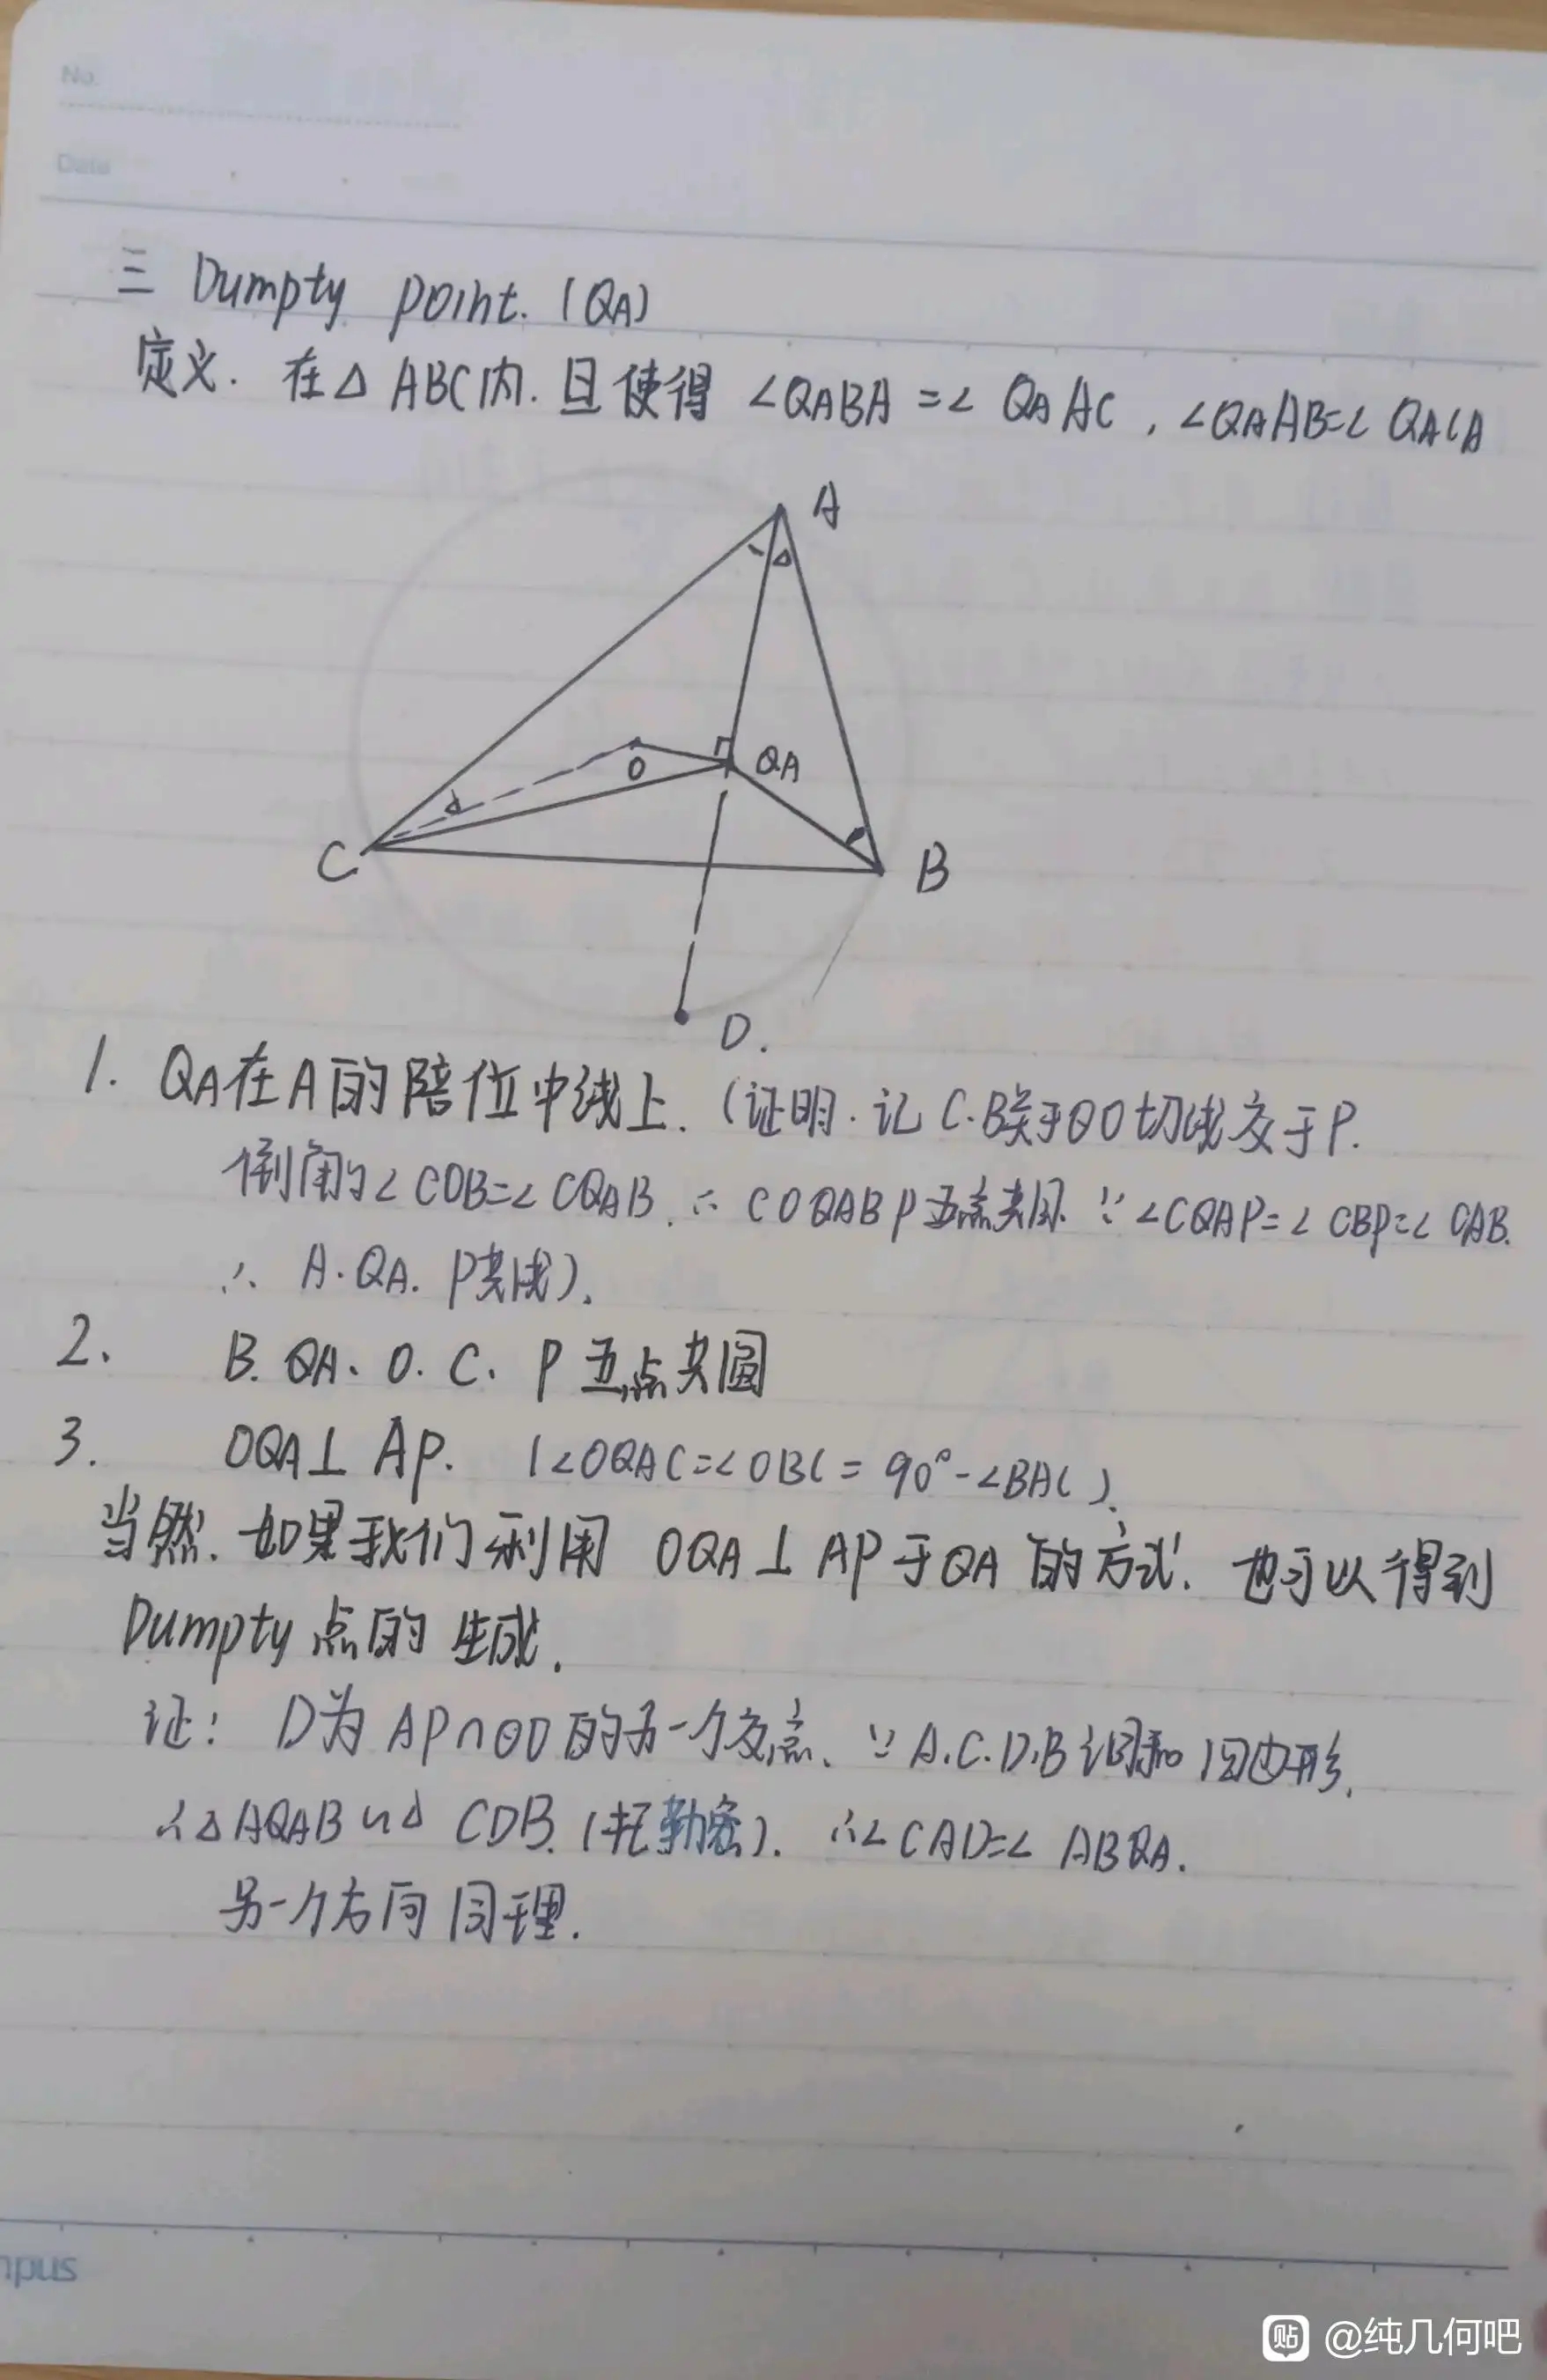 No.
Date
三 Dumpty point. (QA)
定义. 在△ ABC内. 且使得 ∠QABA =∠ QAAC , ∠QAAB=∠ QACA
A
O
QA
C
B
D.
1. QA在A的陪位中线上. (证明. 记 C.B关于⊙O切线交于P.
倒角得∠COB=∠CQAB. ∴ COQABP五点共圆. ∵ ∠CQAP=∠CBP=∠CAB.
∴ A.QA. P共线).
2、 B. QA、O. C、P五点共圆
3. OQA⊥ AP. (∠OQAC=∠OBC = 90°-∠BAC).
当然. 如果我们利用 OQA⊥AP于QA 的方式. 也可以得到
Dumpty点的 生成.
证: D为 AP∩⊙O 的另一个交点、∵ A.C.D.B 调和四边形.
∴△AQAB∽△ CDB. (托勒密). ∴∠CAD=∠ ABQA.
另一个方向同理.
mpus
贴 @纯几何吧